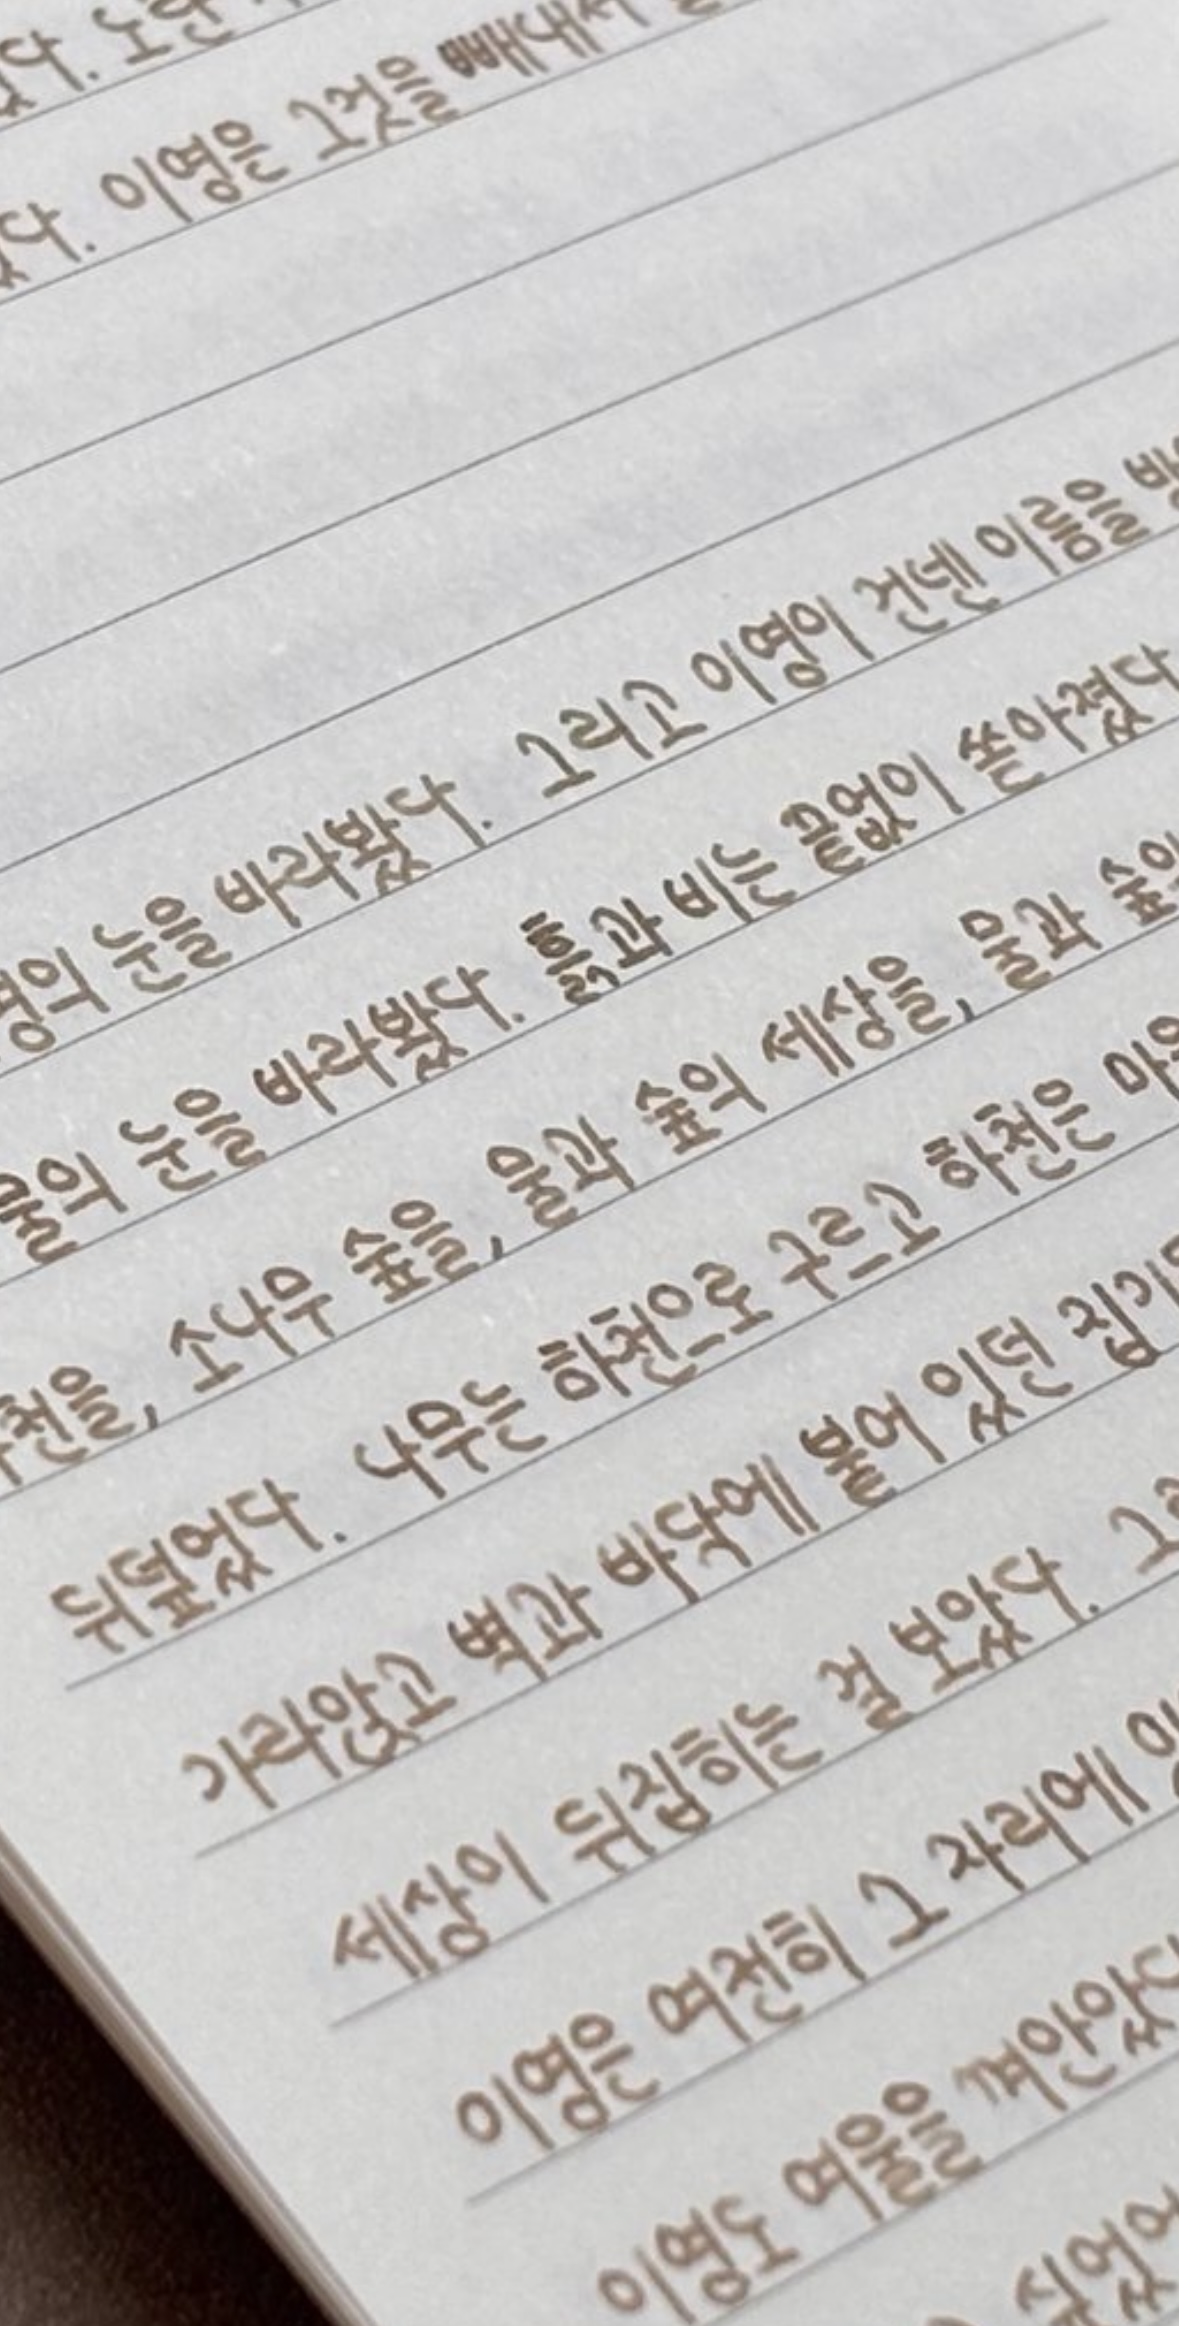 다. 노란
다. 이영은 그것을 빼내서
영의 눈을 바라봤다. 그리고 이영이 건넨 이름을
물의 눈을 바라봤다. 흙과 비는 끝없이 쏟아졌다
천을, 소나무 숲을, 물과 숲의 세상을, 물과
뒤덮었다. 나무는 하천으로 구르고 하천은
가라앉고 벽과 바닥에 붙어 있던 집기
세상이 뒤집히는 걸 보았다.
이영은 여전히 그 자리에
이영도 여울을 껴안았다